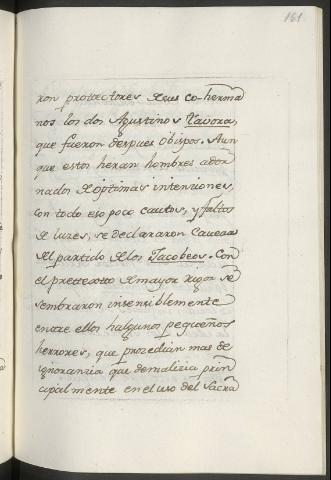 161.
ron protectores de sus co-herma
nos los dos Agustinos Tavora,
que fueron despues Obispos. Aun
que estos heran hombres ador
nados de optimas intenciones,
con todo eso poco cautos, y faltos
de luzes, se declararon Cavezas
del partido de los Jacobeos. Con
el pretexto de mayor rigor se
sembraron insensiblemente
entre ellos halgunos pequeños
herrores, que prozedian mas de
ignoranzia que de malizia prin
cipalmente en el uso del Sacra